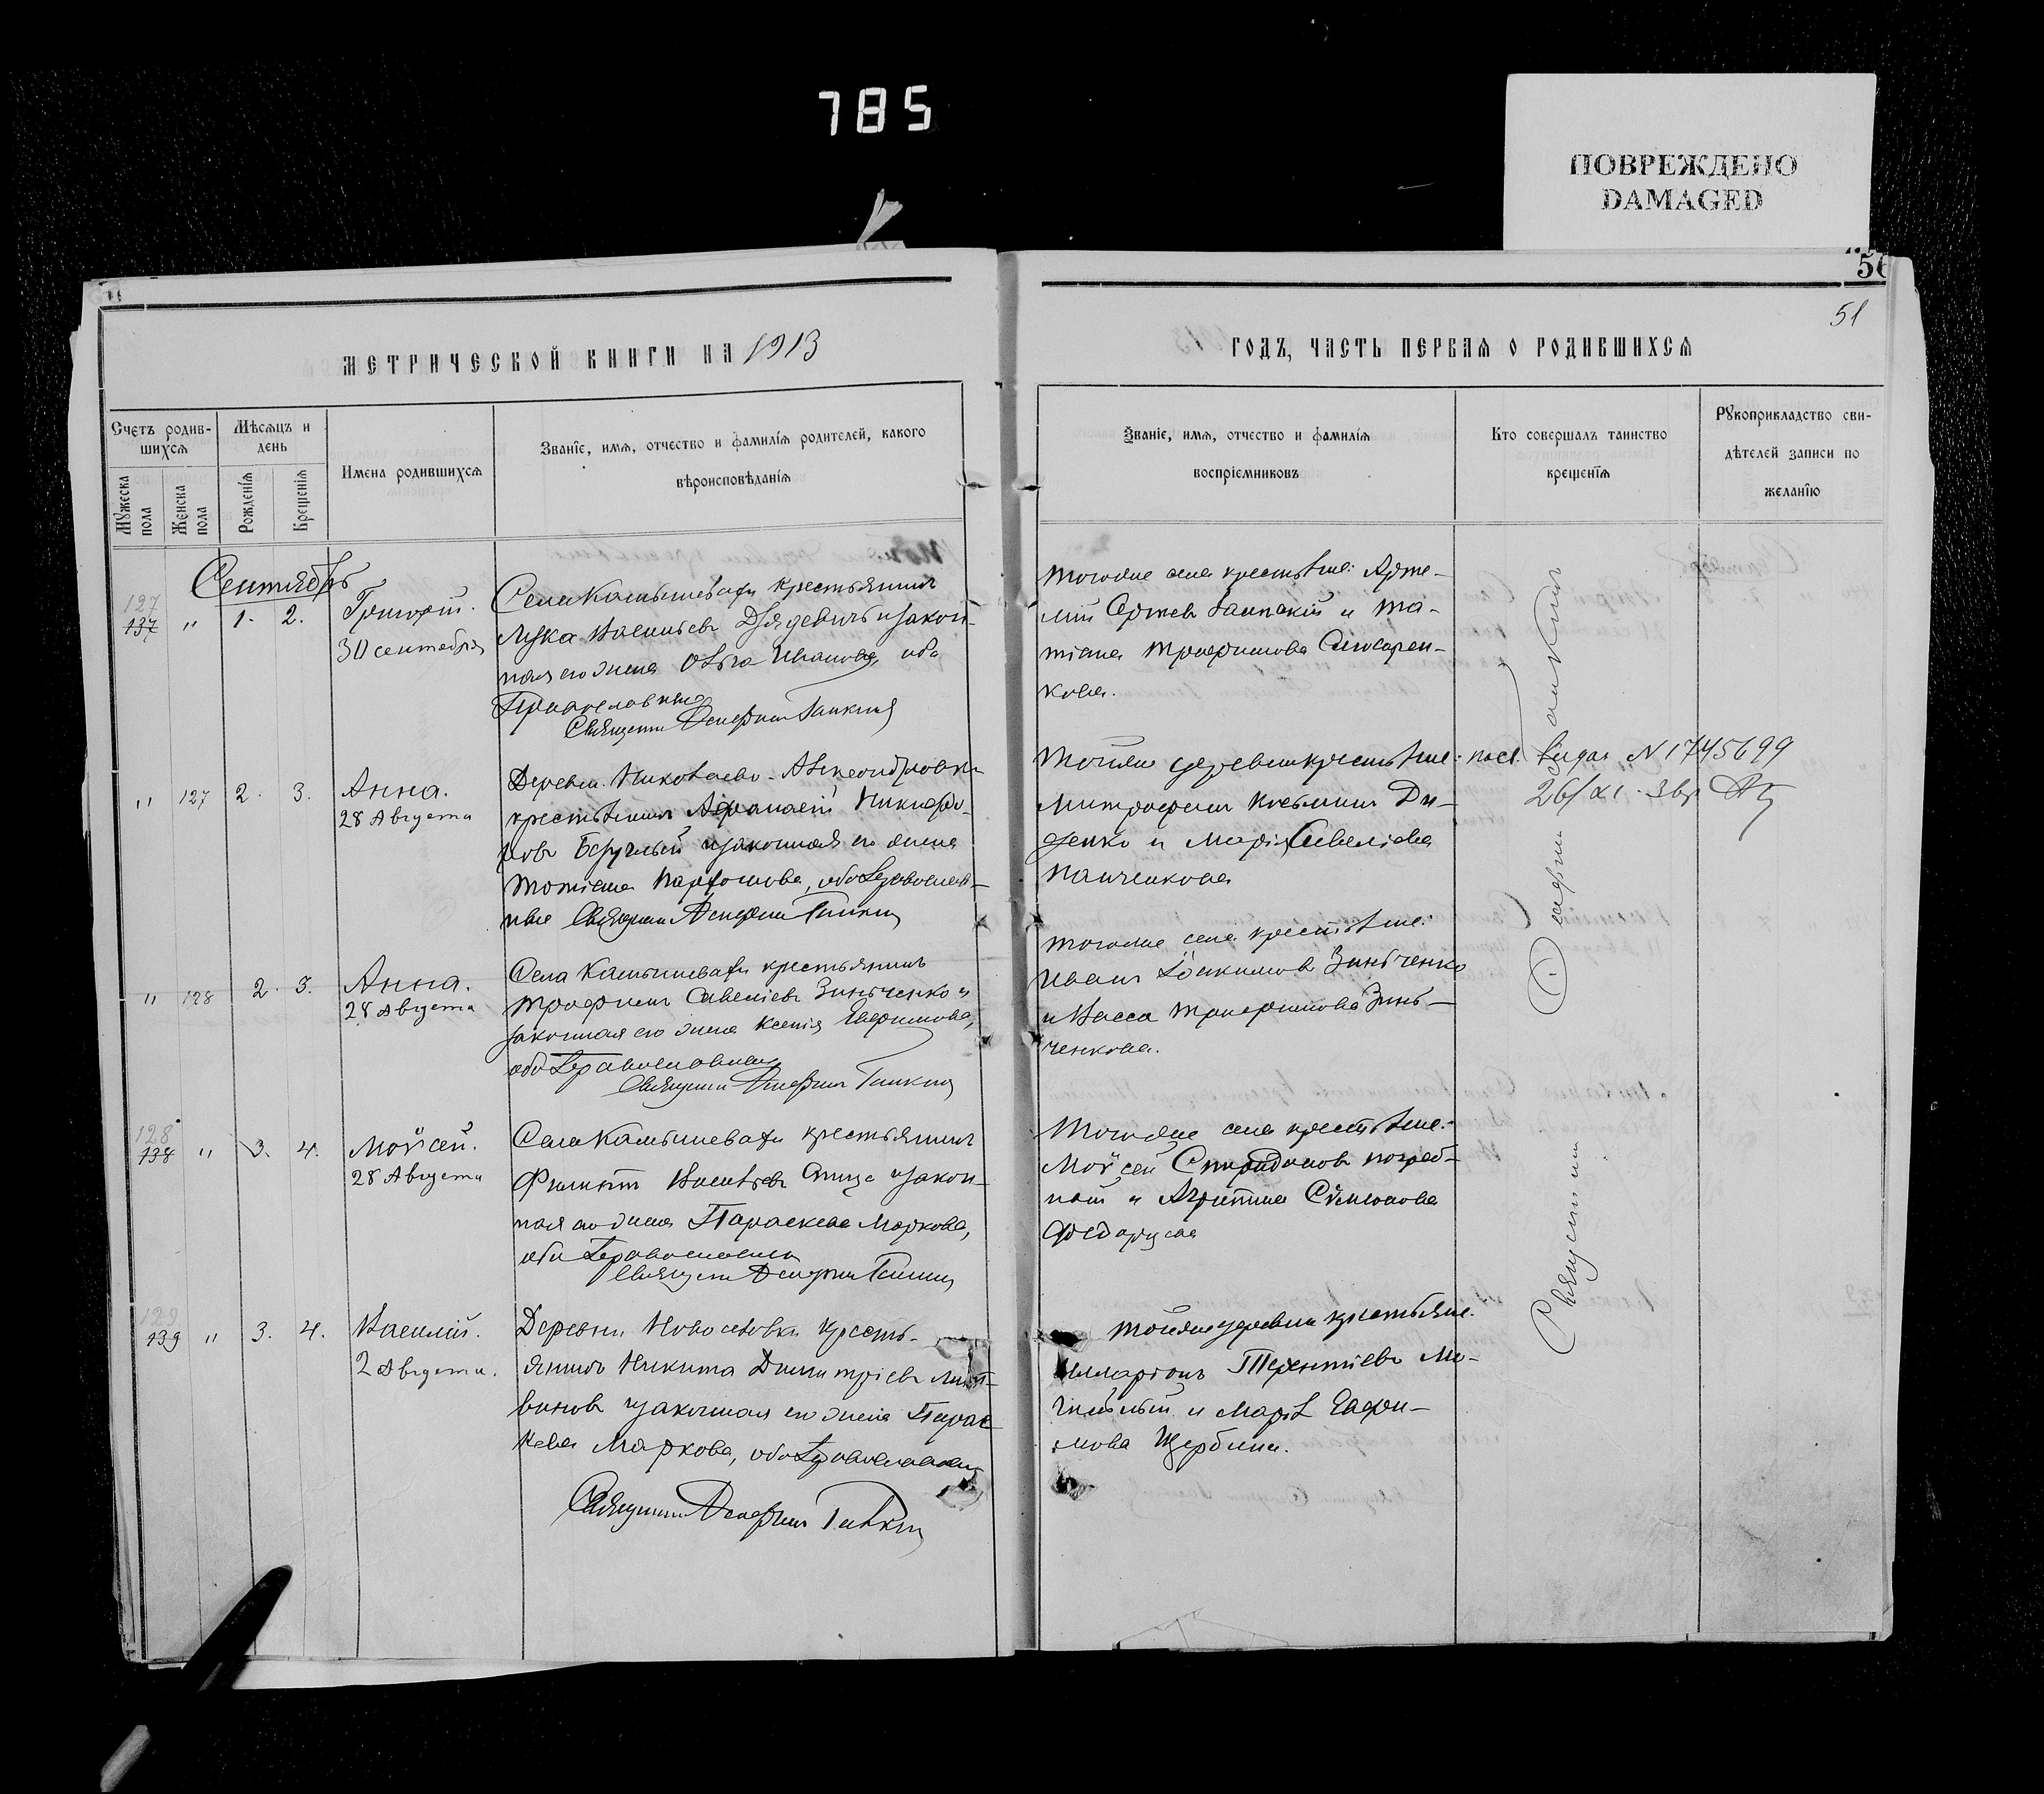 785
ПОВРЕЖДЕНО
DAMAGED
56
51
МЕТРИЧЕСКОЙ КНИГИ НА 1913
ГОДЪ, ЧАСТЬ ПЕРВАЯ О РОДИВШИХСЯ
Счетъ родившихся
Мужеска пола
Женска пола
Мѣсяцъ и день
Рожденія
Крещенія
Имена родившихся
Званіе, имя, отчество и фамилія родителей, какого
вѣроисповѣданія
Званіе, имя, отчество и фамилія
воспріемниковъ
Кто совершалъ таинство
крещенія
Рукоприкладство сви-
дѣтелей записи по
желанію
Сентябрь
127
137 " 1. 2. Григорій.
30 сентября
Села Камышевахи крестьянинъ
Лука Васильевъ и закон-
ная его жена Ольга Иванова, оба
Православные
Священникъ
Тогоже села крестьяне: Арте-
мій Сергіевъ и Та-
тіана Трофимова Слюсарен-
кова.
" 127 2. 3. Анна.
28 Августа
Деревни Николаево-Александровки
крестьянинъ Афанасій Никифо-
ровъ и законная его жена
Татіана Парфенова, оба православ-
ные Священникъ
Тойже деревни крестьяне:
Митрофанъ Козьминъ Ди-
денко и Марія Савеліева
Панченкова
N 1745699
26/XI
" 128 2. 3. Анна.
28 Августа
Села Камышевахи крестьянинъ
Трофимъ Савеліевъ Зиньченко и
законная его жена Ксенія Ефимова,
оба Православные
Священникъ
Тогоже села крестьяне:
Иванъ Іоакимовъ Зиньченко
и Васса Трофимова Зинь-
ченкова.
128
138 " 3. 4. Моѵсей.
28 Августа
Села Камышевахи крестьянинъ
Филиппъ Васильевъ и закон-
ная его жена Параскева Маркова,
оба Православные
Священникъ
Тогоже села крестьяне:
Моѵсей Спиридоновъ
и Агрипина Сѵмеонова
129
139 " 3. 4. Василій.
2 Августа.
Деревни крестья-
янинъ Никита Димитріевъ Лит-
виновъ и законная его жена Парас-
кева Маркова, оба Православные
Священникъ
Тойже деревни крестьяне.
Илларіонъ Терентіевъ Мо-
гильный и Марія Ефи-
мова Щербина.
Священникъ